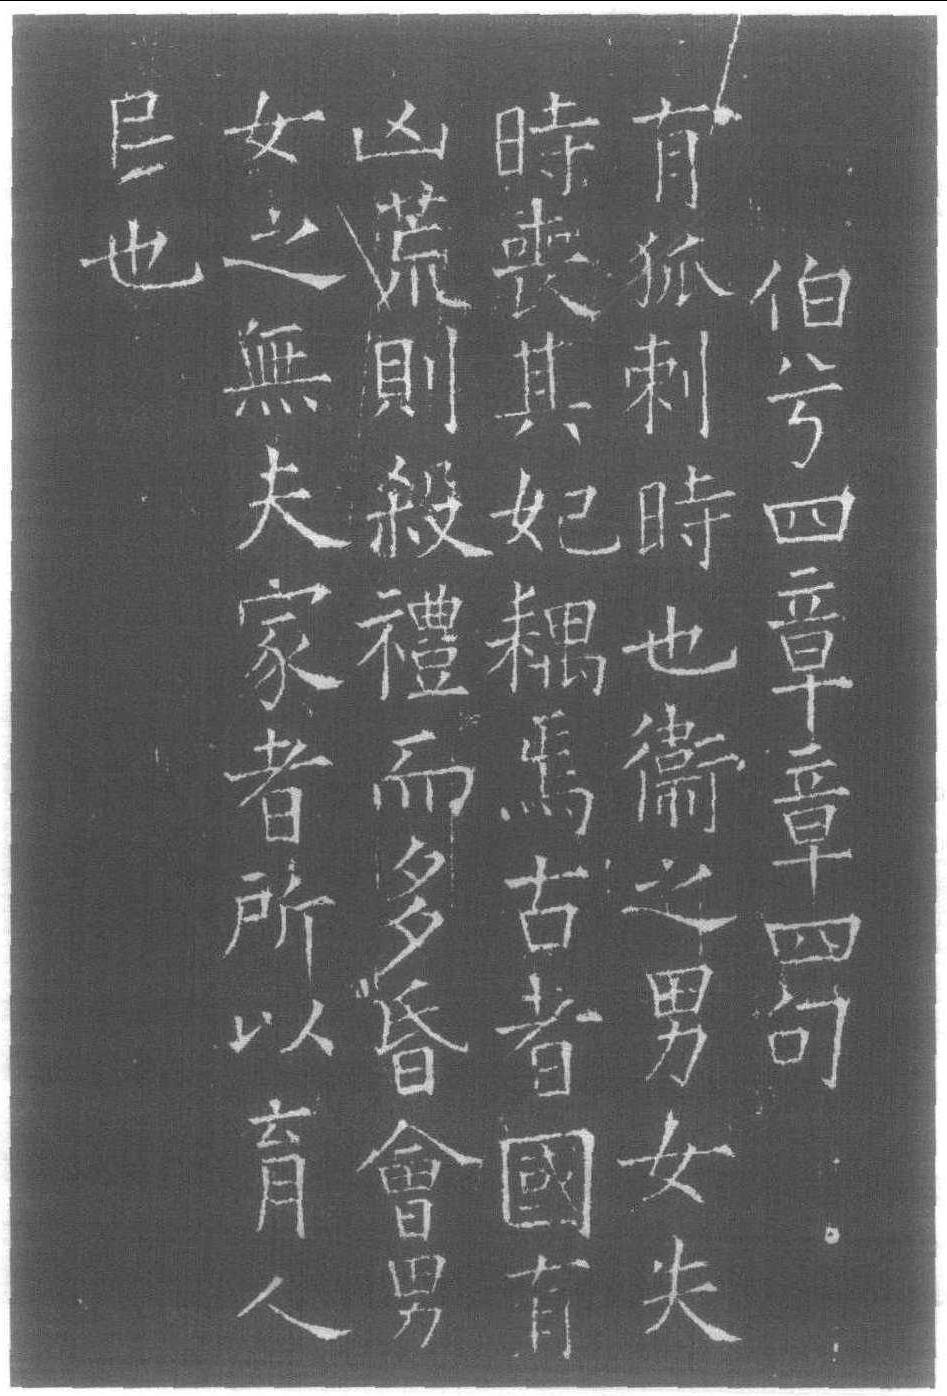 伯兮四章章四句
有狐刺時也衞之男女失
時喪其妃耦焉古者國有
凶荒則殺禮而多昏會男
女之無夫家者所以育人
民也